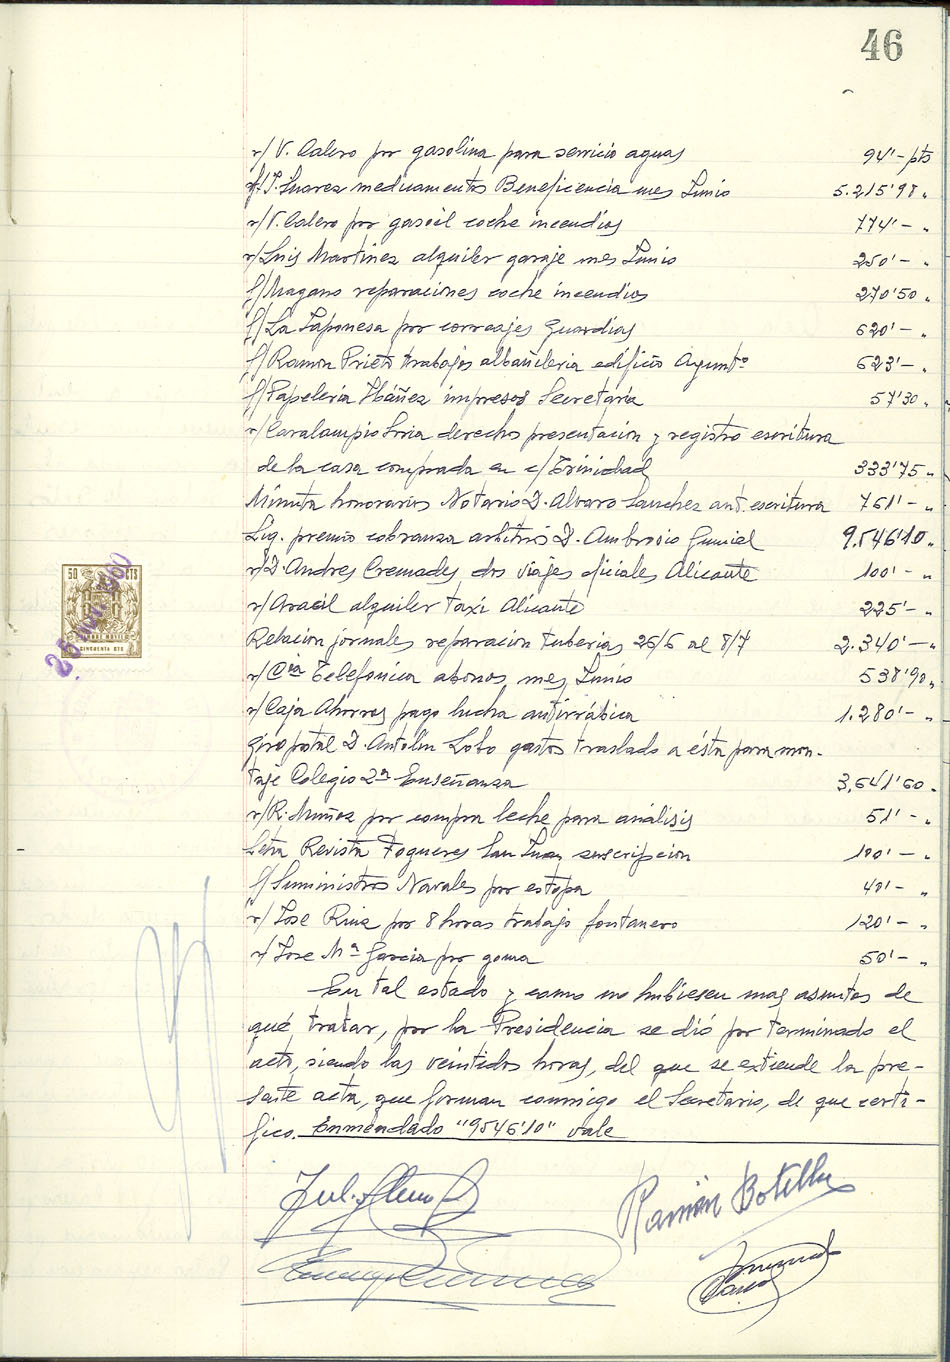 46
r/ V. Calero por gasolina para servicio aguas 94'- pts
f/. J. Suarez medicamentos Beneficencia mes Junio 5.215'98 "
r/ V. Calero por gasoil coche incendios 774'- "
r/ Luis Martinez alquiler garaje mes Junio 250'- "
f/ Magano reparaciones coche incendios 270'50 "
f/ La Japonesa por correajes Guardias 620'- "
f/ Ramon Prieto trabajos albañileria edificio Ayuntº 623'- "
f/ Papeleria Ibáñez impresos Secretaría 57'30 "
r/ Caralampio Soria derechos presentacion y registro escritura
de la casa comprada en c/ Trinidad 333'75 "
Minuta honorarios Notario D. Alvaro Sanchez ant. escritura 761'- "
Liq. premio cobranza arbitrios D. Ambrosio 9.546'10 "
r/ D. Andres Cremades dos viajes oficiales Alicante 100'- "
r/ Aracil alquiler taxi Alicante 225'- "
Relacion jornales reparacion tuberias 26/6 al 8/7 2.340'- "
r/ Cia Telefonica abonos mes Junio 538'90 "
r/ Caja Ahorros pago lucha antirrábica 1.280'- "
Giro postal D. Antolin Lobo gastos traslado a ésta para mon-
taje Colegio 2ª Enseñanza 3,641'60 "
r/ R. Muñoz por compra leche para análisis 51'- "
Letra Revista Fogueres San Juan suscripcion 100'- "
f/ Suministros Navales por estopa 40'- "
r/ Jose Ruiz por 8 horas trabajo fontanero 120'- "
r/ Jose Mª Garcia por goma 50'- "
En tal estado y como no hubiesen mas asuntos de
qué tratar, por la Presidencia se dió por terminado el
acto, siendo las veintidos horas, del que se extiende la pre-
sente acta, que forman conmigo el Secretario, de que certi-
fico. Enmendado "9546'10" vale
50 CTS
TIMBRE MOVIL
CINCUENTA CTS
25 1960
Ramón Botella